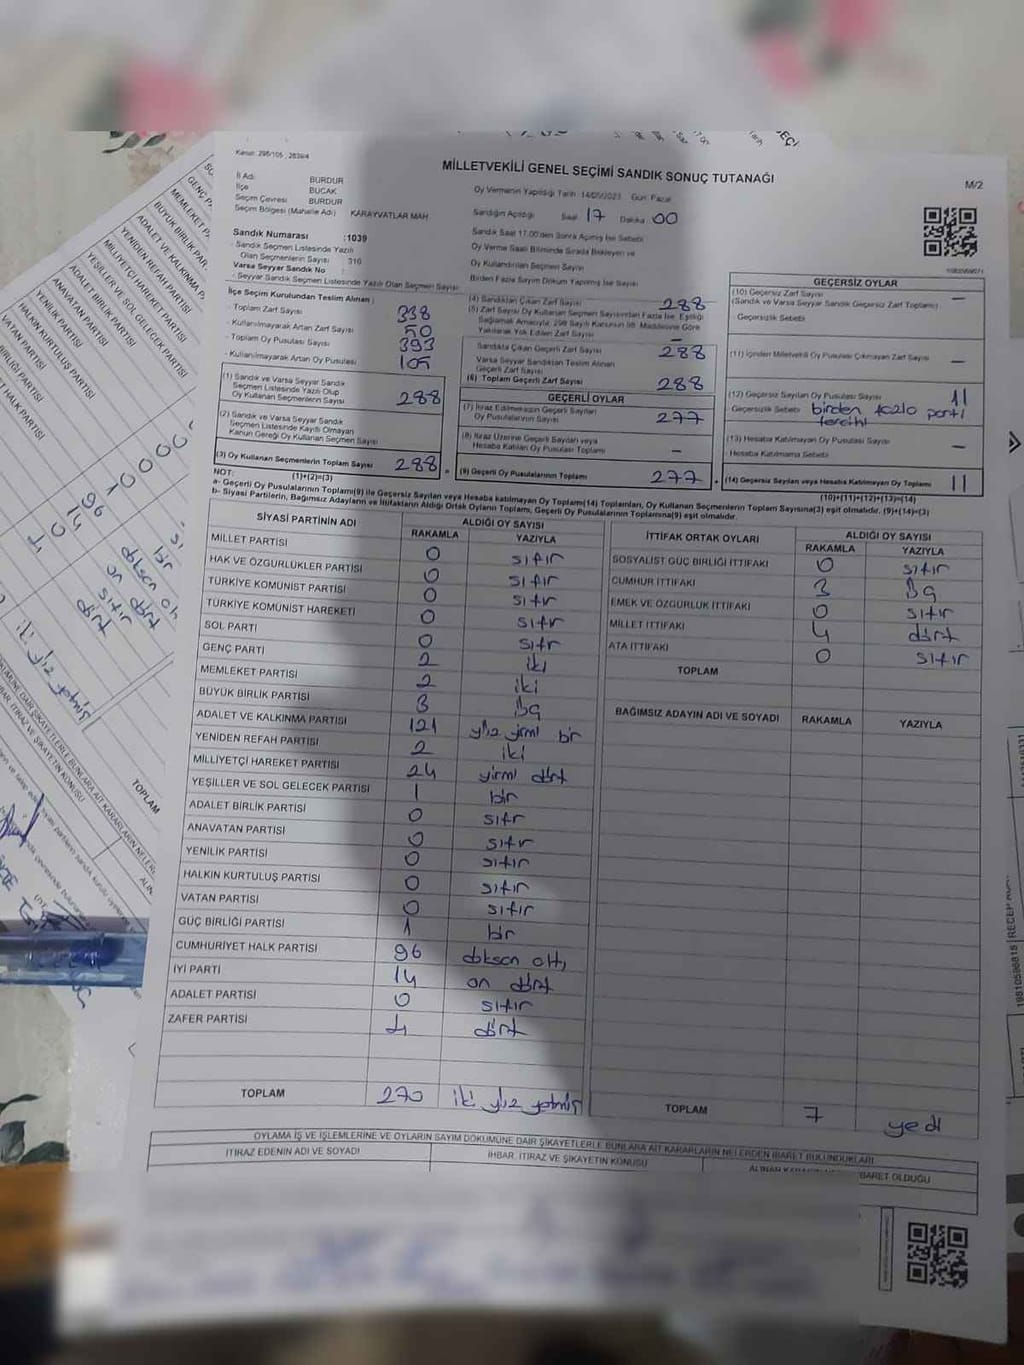 Kanun: 298/105 , 2839/4
MİLLETVEKİLİ GENEL SEÇİMİ SANDIK SONUÇ TUTANAĞI
M/2
İl Adı BURDUR
İlçe BUCAK
Seçim Çevresi BURDUR
Seçim Bölgesi (Mahalle Adı) KARAYVATLAR MAH.
Oy Vermenin Yapıldığı Tarih 14/05/2023 Gün: Pazar
Sandığın Açıldığı Saat 17 Dakika 00
Sandık Numarası :1039
- Sandık Seçmen Listesinde Yazılı
Olan Seçmenlerin Sayısı 310
Varsa Seyyar Sandık No :
- Seyyar Sandık Seçmen Listesinde Yazılı Olan Seçmen Sayısı
Sandık Saat 17.00'den Sonra Açılmış İse Sebebi
Oy Verme Saati Bitiminde Sırada Bekleyen ve
Oy Kullandırılan Seçmen Sayısı
Birden Fazla Sayım Döküm Yapılmış İse Sayısı
İlçe Seçim Kurulundan Teslim Alınan ;
- Toplam Zarf Sayısı 338
- Kullanılmayarak Artan Zarf Sayısı 50
- Toplam Oy Pusulası Sayısı 393
- Kullanılmayarak Artan Oy Pusulası 105
(1) Sandık ve Varsa Seyyar Sandık
Seçmen Listesinde Yazılı Olup
Oy Kullanan Seçmenlerin Sayısı 288
(2) Sandık ve Varsa Seyyar Sandık
Seçmen Listesinde Kayıtlı Olmayan
Kanun Gereği Oy Kullanan Seçmen Sayısı
(3) Oy Kullanan Seçmenlerin Toplam Sayısı 288
(1)+(2)=(3)
(4) Sandıktan Çıkan Zarf Sayısı 288
(5) Zarf Sayısı Oy Kullanan Seçmen Sayısından Fazla İse, Eşitliği
Sağlamak Amacıyla, 298 Sayılı Kanunun 98. Maddesine Göre
Yakılarak Yok Edilen Zarf Sayısı —
Sandıkta Çıkan Geçerli Zarf Sayısı 288
Varsa Seyyar Sandıktan Teslim Alınan
Geçerli Zarf Sayısı
(6) Toplam Geçerli Zarf Sayısı 288
GEÇERLİ OYLAR
(7) İtiraz Edilmeksizin Geçerli Sayılan
Oy Pusulalarının Sayısı 277
(8) İtiraz Üzerine Geçerli Sayılan veya
Hesaba Katılan Oy Pusulası Toplamı —
(9) Geçerli Oy Pusulalarının Toplamı 277
GEÇERSİZ OYLAR
(10) Geçersiz Zarf Sayısı —
(Sandık ve Varsa Seyyar Sandık Geçersiz Zarf Toplamı)
- Geçersizlik Sebebi
(11) İçinden Milletvekili Oy Pusulası Çıkmayan Zarf Sayısı —
(12) Geçersiz Sayılan Oy Pusulası Sayısı 11
- Geçersizlik Sebebi birden fazla parti
tercihi
(13) Hesaba Katılmayan Oy Pusulası Sayısı —
- Hesaba Katılmama Sebebi
(14) Geçersiz Sayılan veya Hesaba Katılmayan Oy Toplamı 11
(10)+(11)+(12)+(13)=(14)
NOT:
a- Geçerli Oy Pusulalarının Toplamı(9) ile Geçersiz Sayılan veya Hesaba katılmayan Oy Toplamı(14) Toplamları, Oy Kullanan Seçmenlerin Toplam Sayısına(3) eşit olmalıdır. (9)+(14)=(3)
b- Siyasi Partilerin, Bağımsız Adayların ve İttifakların Aldığı Ortak Oyların Toplamı, Geçerli Oy Pusulalarının Toplamına(9) eşit olmalıdır.
SİYASİ PARTİNİN ADI ALDIĞI OY SAYISI
RAKAMLA YAZIYLA
MİLLET PARTİSİ 0 sıfır
HAK VE ÖZGÜRLÜKLER PARTİSİ 0 sıfır
TÜRKİYE KOMÜNİST PARTİSİ 0 sıfır
TÜRKİYE KOMÜNİST HAREKETİ 0 sıfır
SOL PARTİ 0 sıfır
GENÇ PARTİ 2 iki
MEMLEKET PARTİSİ 2 iki
BÜYÜK BİRLİK PARTİSİ 3 üç
ADALET VE KALKINMA PARTİSİ 121 yüz yirmi bir
YENİDEN REFAH PARTİSİ 2 iki
MİLLİYETÇİ HAREKET PARTİSİ 24 yirmi dört
YEŞİLLER VE SOL GELECEK PARTİSİ 1 bir
ADALET BİRLİK PARTİSİ 0 sıfır
ANAVATAN PARTİSİ 0 sıfır
YENİLİK PARTİSİ 0 sıfır
HALKIN KURTULUŞ PARTİSİ 0 sıfır
VATAN PARTİSİ 0 sıfır
GÜÇ BİRLİĞİ PARTİSİ 1 bir
CUMHURİYET HALK PARTİSİ 96 doksan altı
İYİ PARTİ 14 on dört
ADALET PARTİSİ 0 sıfır
ZAFER PARTİSİ 4 dört
TOPLAM 270 iki yüz yetmiş
İTTİFAK ORTAK OYLARI ALDIĞI OY SAYISI
RAKAMLA YAZIYLA
SOSYALİST GÜÇ BİRLİĞİ İTTİFAKI 0 sıfır
CUMHUR İTTİFAKI 3 üç
EMEK VE ÖZGÜRLÜK İTTİFAKI 0 sıfır
MİLLET İTTİFAKI 4 dört
ATA İTTİFAKI 0 sıfır
TOPLAM
BAĞIMSIZ ADAYIN ADI VE SOYADI RAKAMLA YAZIYLA
TOPLAM 7 yedi
OYLAMA İŞ VE İŞLEMLERİNE VE OYLARIN SAYIM DÖKÜMÜNE DAİR ŞİKAYETLERLE BUNLARA AİT KARARLARIN NELERDEN İBARET BULUNDUKLARI
İTİRAZ EDENİN ADI VE SOYADI İHBAR, İTİRAZ VE ŞİKAYETİN KONUSU
BARET OLDUĞU